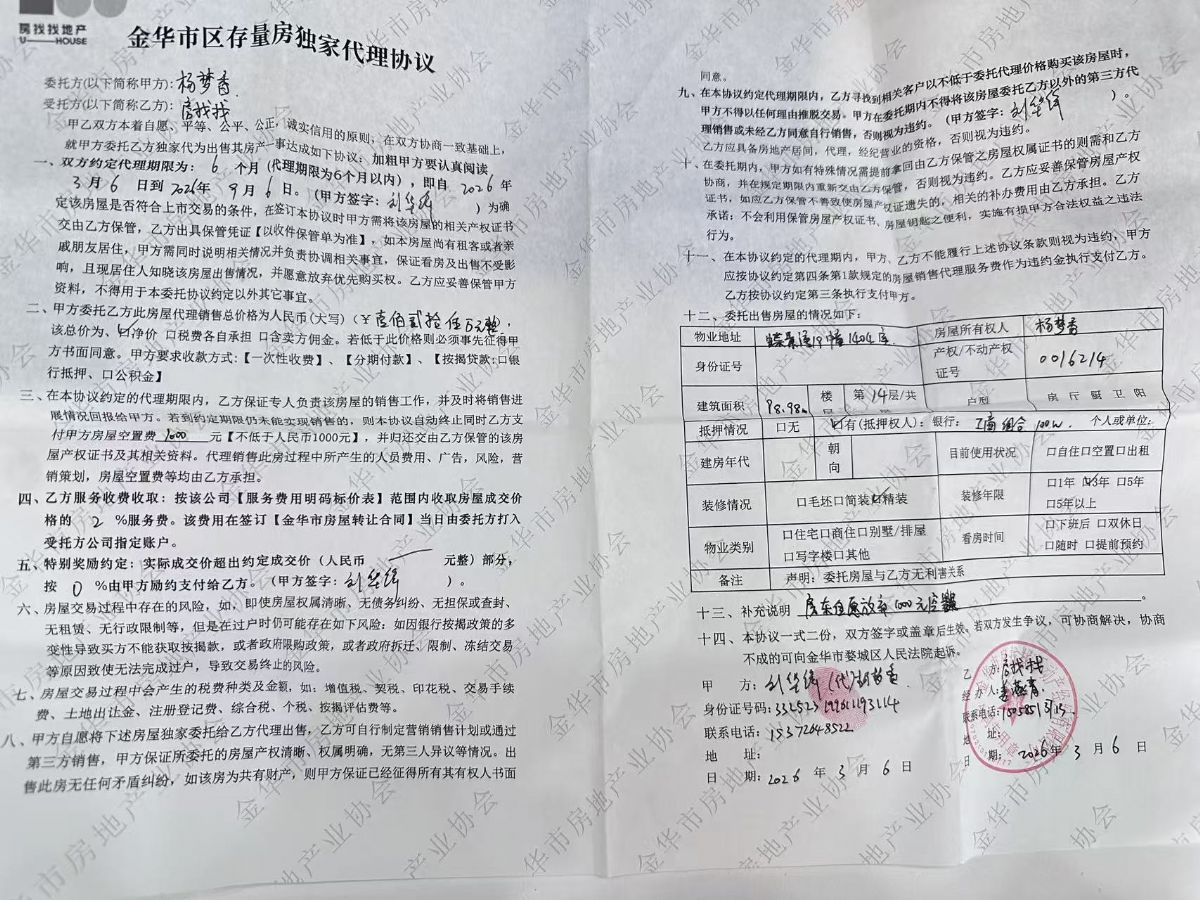 房找找地产
U——HOUSE
金华市区存量房独家代理协议
委托方(以下简称甲方): 杨梦香
受托方(以下简称乙方): 房找找
甲乙双方本着自愿、平等、公平、公正，诚实信用的原则，在双方协商一致基础上，
就甲方委托乙方独家代为出售其房产一事达成如下协议：加粗甲方要认真阅读
一、双方约定代理期限为： 6 个月（代理期限为6个月以内），即自 2026 年
3 月 6 日到 2026年 9 月 6 日。（甲方签字： ）为确
定该房屋是否符合上市交易的条件，在签订本协议时甲方需将该房屋的相关产权证书
交由乙方保管，乙方出具保管凭证【以收件保管单为准】，如本房屋尚有租客或者亲
戚朋友居住，甲方需同时说明相关情况并负责协调相关事宜，保证看房及出售不受影
响，且现居住人知晓该房屋出售情况，并愿意放弃优先购买权。乙方应妥善保管甲方
资料，不得用于本委托协议约定以外其它事宜。
二、甲方委托乙方此房屋代理销售总价格为人民币(大写)（￥壹佰贰拾伍万元整，
该总价为、☑净价 口税费各自承担 口含卖方佣金。若低于此价格则必须事先征得甲
方书面同意。甲方要求收款方式：【一次性收费】、【分期付款】、【按揭贷款:口银
行抵押、口公积金】
三、在本协议约定的代理期限内，乙方保证专人负责该房屋的销售工作，并及时将销售进
展情况回报给甲方。若到约定期限仍未能实现销售的，则本协议自动终止同时乙方支
付甲方房屋空置费 1000 元【不低于人民币1000元】，并归还交由乙方保管的该房
屋产权证书及其相关资料。代理销售此房过程中所产生的人员费用、广告，风险，营
销策划，房屋空置费等均由乙方承担。
四、乙方服务收费收取：按该公司【服务费用明码标价表】范围内收取房屋成交价
格的 2 %服务费。该费用在签订【金华市房屋转让合同】当日由委托方打入
受托方公司指定账户。
五、特别奖励约定：实际成交价超出约定成交价（人民币 元整）部分，
按 0 %由甲方励约支付给乙方。（甲方签字： ）。
六、房屋交易过程中存在的风险，如，即使房屋权属清晰、无债务纠纷、无担保或查封、
无租赁、无行政限制等，但是在过户时仍可能存在如下风险：如因银行按揭政策的多
变性导致买方不能获取按揭款，或者政府限购政策，或者政府拆迁、限制、冻结交易
等原因致使无法完成过户，导致交易终止的风险。
七、房屋交易过程中会产生的税费种类及金额，如：增值税、契税、印花税、交易手续
费、土地出让金、注册登记费、综合税、个税、按揭评估费等。
八、甲方自愿将下述房屋独家委托给乙方代理出售，乙方可自行制定营销销售计划或通过
第三方销售，甲方保证所委托的房屋产权清晰、权属明确，无第三人异议等情况。出
售此房无任何矛盾纠纷，如该房为共有财产，则甲方保证已经征得所有其有权人书面
同意。
九、在本协议约定代理期限内，乙方寻找到相关客户以不低于委托代理价格购买该房屋时，
甲方不得以任何理由推脱交易。甲方在委托期内不得将该房屋委托乙方以外的第三方代
理销售或未经乙方同意自行销售，否则视为违约。（甲方签字： ）。
乙方应具备房地产居间，代理，经纪营业的资格，否则视为违约。
十、在委托期内，甲方如有特殊情况需提前拿回由乙方保管之房屋权属证书的则需和乙方
协商，并在规定期限内重新交由乙方保管，否则视为违约。乙方应妥善保管房屋产权
证书，如应乙方保管不善致使房屋产权证遗失的，相关的补办费用由乙方承担。乙方
承诺：不会利用保管房屋产权证书、房屋钥匙之便利，实施有损甲方合法权益之违法
行为。
十一、在本协议约定的代理期内，甲方、乙方不能履行上述协议条款则视为违约，甲方
应按协议约定第四条第1款规定的房屋销售代理服务费作为违约金执行支付乙方。
乙方按协议约定第三条执行支付甲方。
十二、委托出售房屋的情况如下：
物业地址 19幢1404室 房屋所有权人 杨梦香
身份证号 产权/不动产权证号 0016214
建筑面积 98.98㎡ 楼 第14层/共 户型 房 厅 厨 卫 阳
抵押情况 口无 ☑有(抵押权人)：银行： 工商 组合 100w. 个人或单位:
建房年代 朝向 目前使用状况 口自住口空置口出租
装修情况 口毛坯口简装☑精装 装修年限 口1年 ☑3年 口5年
口5年以上
物业类别 口住宅口商住口别墅/排屋
口写字楼口其他 看房时间 口下班后 口双休日
口随时 口提前预约
备注 声明：委托房屋与乙方无利害关系
十三、补充说明 房东自愿放弃1000元空置费。
十四、本协议一式二份，双方签字或盖章后生效，若双方发生争议，可协商解决，协商
不成的可向金华市婺城区人民法院起诉。
甲 方： (代)杨梦香
身份证号码:
联系电话: 15372648522
地 址:
日 期: 2026 年 3 月 6 日
乙 方: 房找找
经 办 人:
联系电话:
地 址:
日 期: 2026年 3 月 6 日
金华市房地产业协会